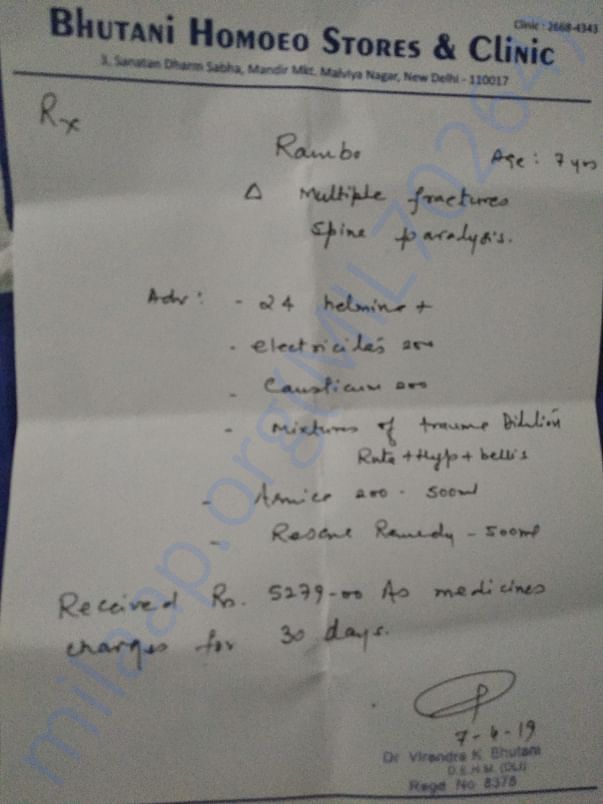 Clinic : 2668-4343
BHUTANI HOMOEO STORES & CLINIC
3, Sanatan Dharm Sabha, Mandir Mkt. Malviya Nagar, New Delhi - 110017
Rx
Rambo Age : 7 yrs
Δ Multiple fractures
Spine paralysis.
Adv : - 24 helmine +
- electricitas 200
- Causticum 200
- Mixtures of traume Dilution
Ruta + Hyp + bellis
- Arnica 200 - 500ml
- Rescue Remedy - 500ml
Received Rs. 5279-00 As medicines
charges for 30 days.
7-6-19
Dr Virendra K Bhutani
D.E.H.M. (DLI)
Regd No 8378
milaap.org(MIL702647)